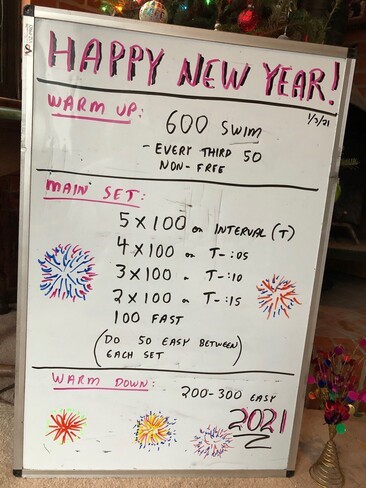 HAPPY NEW YEAR!
1/2/21
WARM UP:
600 SWIM
- EVERY THIRD 50
NON-FREE
MAIN SET:
5 X 100 on INTERVAL (T)
4 X 100 on T-:05
3 X 100 on T-:10
2 X 100 on T-:15
100 FAST
(DO 50 EASY BETWEEN
EACH SET)
WARM DOWN:
200-300 EASY
2021